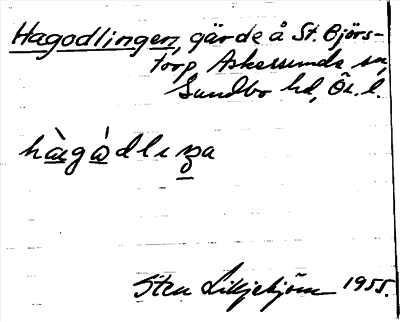 Hagodlingen, gärde å St. Björs-
torp, Askersunds sn,
Sundbo hd, Ör. l.
hàgàdlıŋa
Sten Liljehjöm 1955.